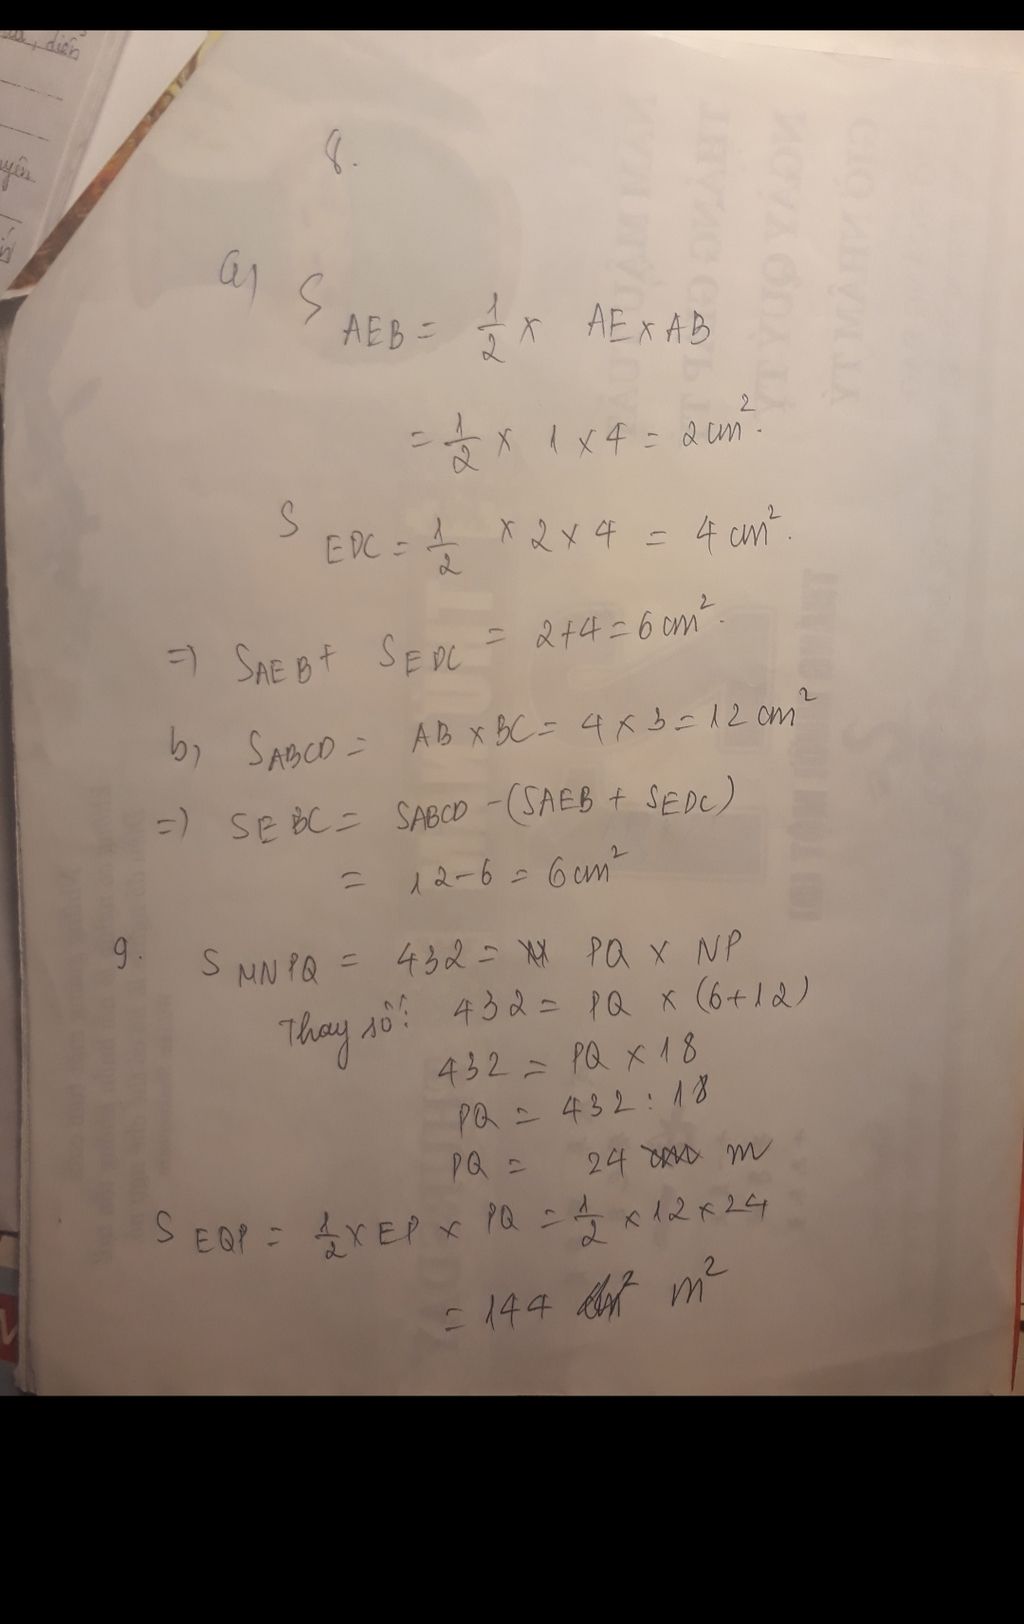 diễn
8.
a, S AEB = 1/2 x AE x AB
= 1/2 x 1 x 4 = 2 cm².
S EDC = 1/2 x 2 x 4 = 4 cm².
=) SAEB + SEDC = 2+4 = 6 cm².
b, SABCD = AB x BC = 4 x 3 = 12 cm²
=) SEBC = SABCD - (SAEB + SEDC)
= 12-6 = 6 cm²
9. S MNPQ = 432 = PQ x NP
Thay số: 432 = PQ x (6+12)
432 = PQ x 18
PQ = 432 : 18
PQ = 24 m
S EQP = 1/2 x EP x PQ = 1/2 x 12 x 24
= 144 m²